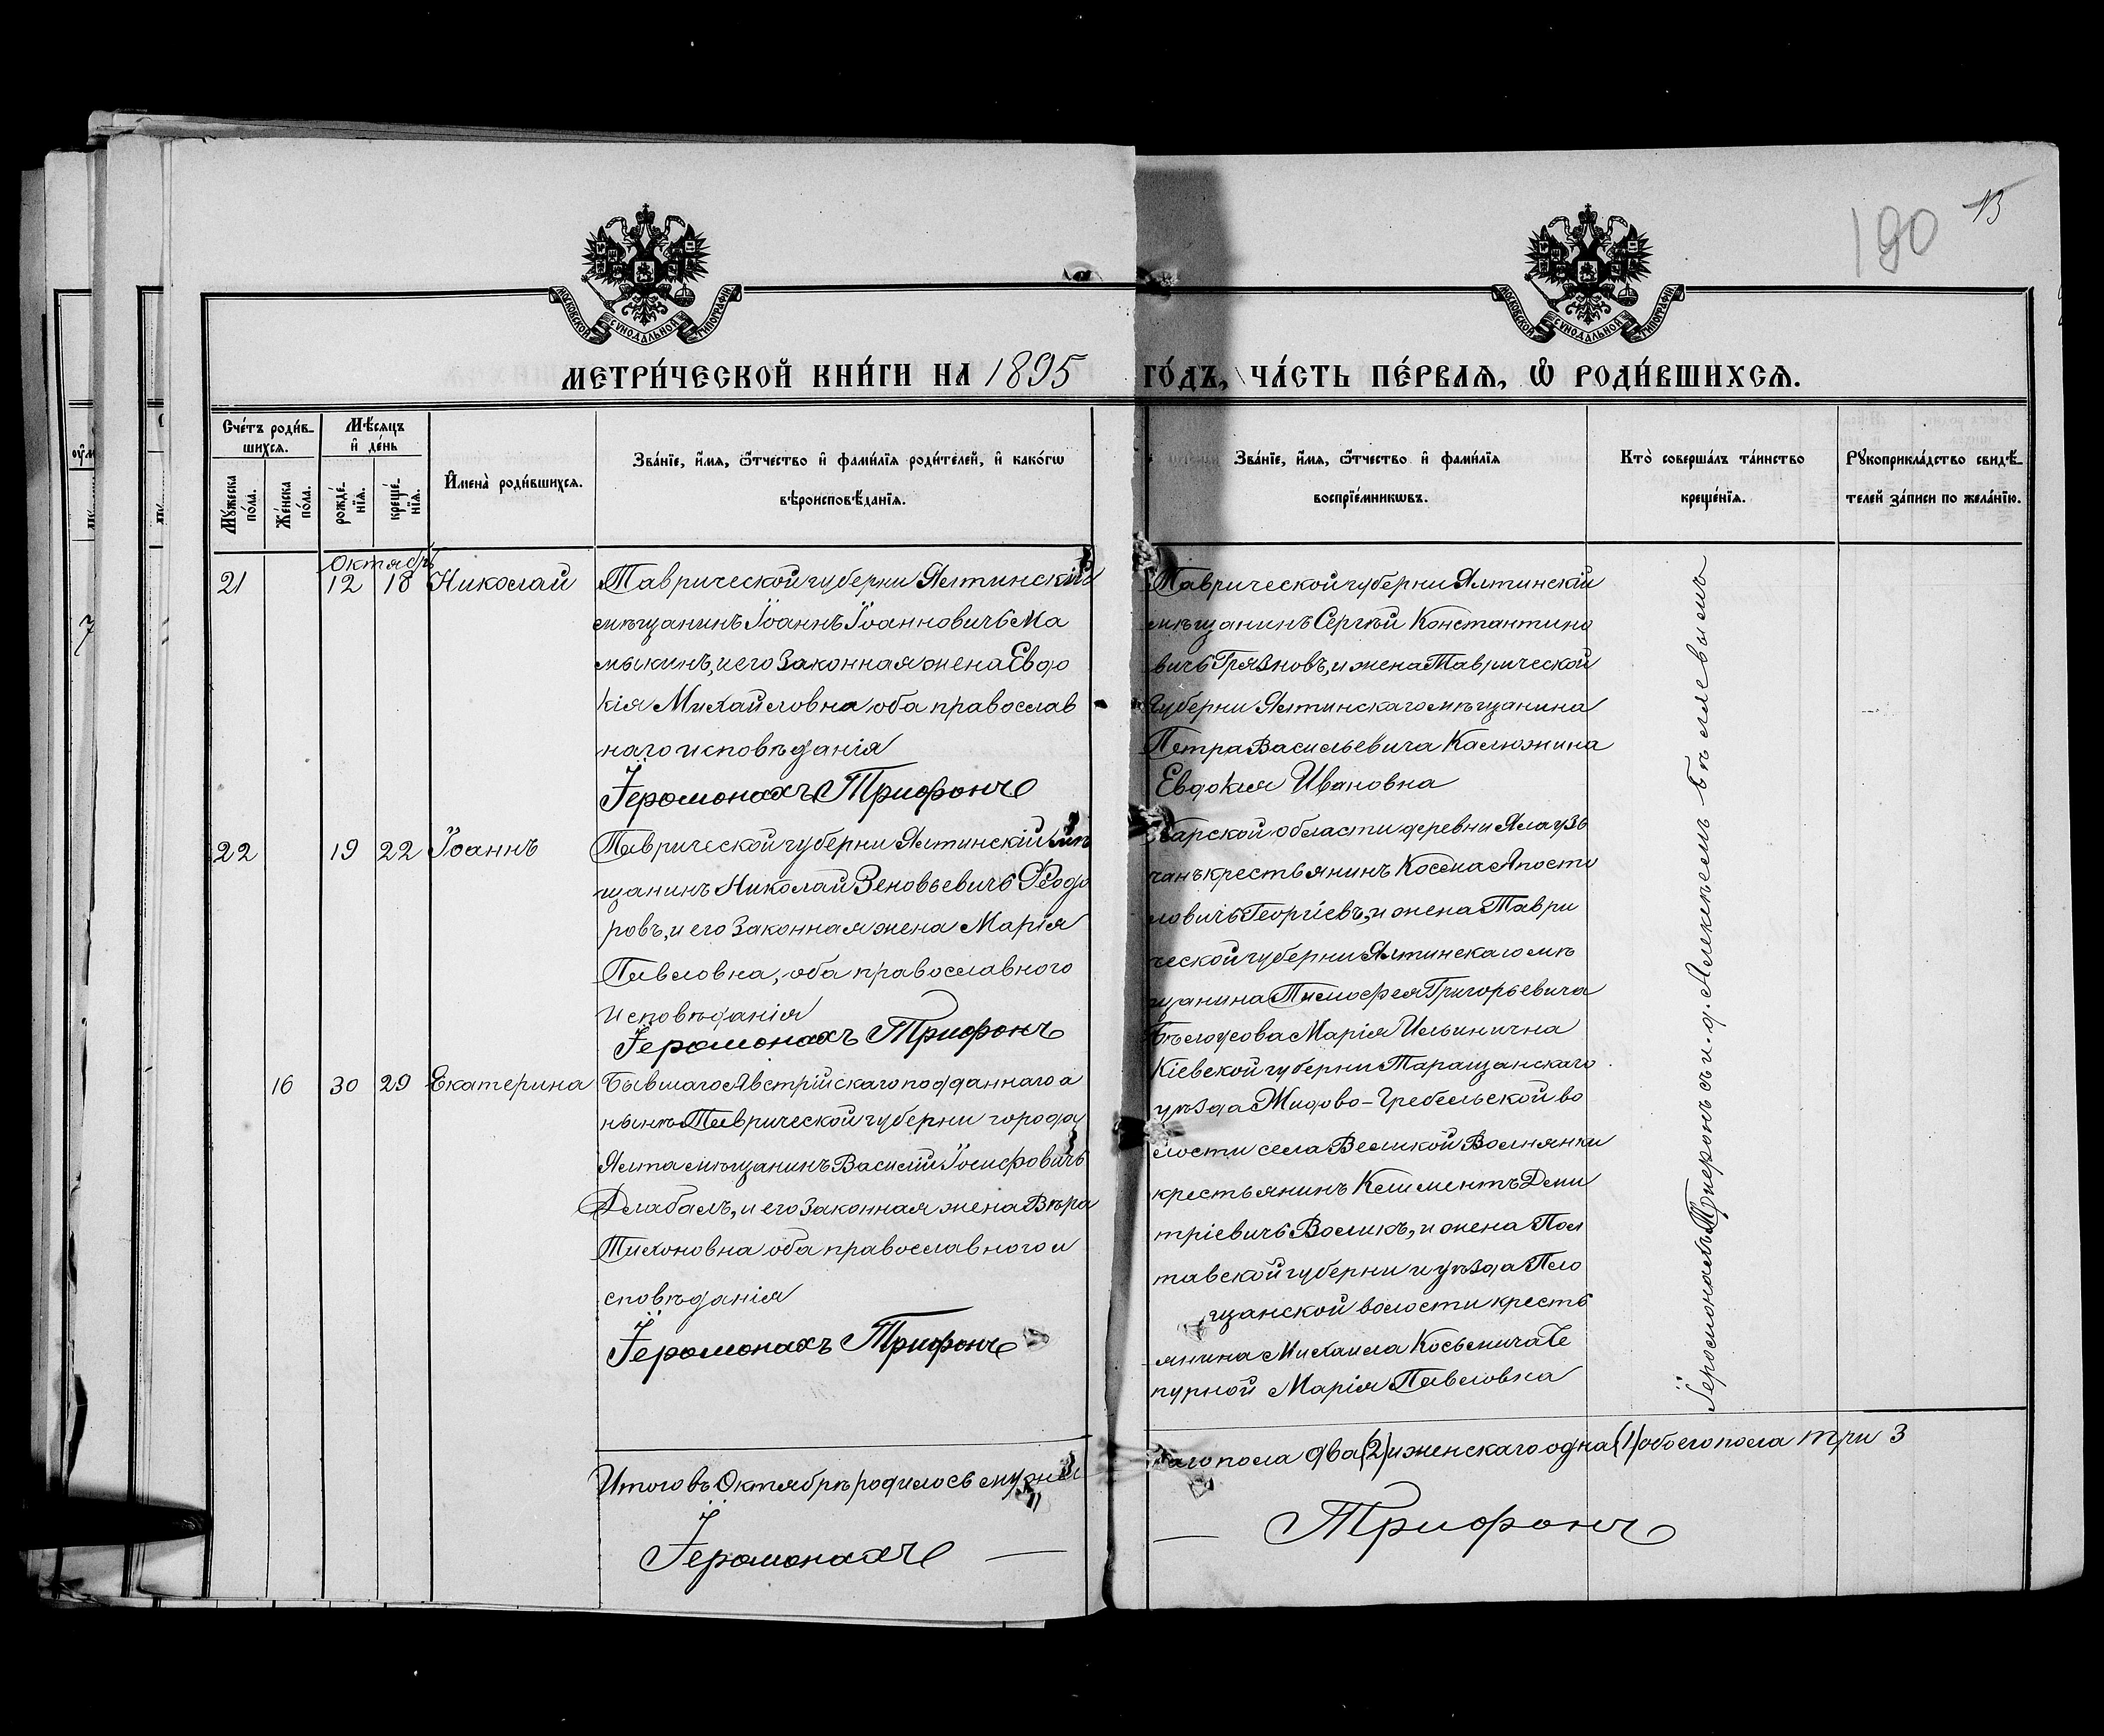 190 13
МОСКОВСКОЙ СУНОДАЛЬНОЙ ТИПОГРАФІИ
МОСКОВСКОЙ СУНОДАЛЬНОЙ ТИПОГРАФІИ
МЕТРИ́ЧЕСКОЙ КНИ́ГИ НА 1895 ГО́ДЪ, ЧА́СТЬ ПЕ́РВАЯ, Ѽ РОДИ́ВШИХСЯ.
Сче́тъ роди́в-
шихся.
Мꙋ́жеска
по́ла.
Же́нска
по́ла.
Мѣ́сяцъ
и҆ де́нь
рожде́-
нїя.
креще́-
нїя.
И҆мена̀ роди́вшихся.
Зва́нїе, и҆́мя, ѻ҆́тчество и҆ фами́лїя роди́телей, и҆ како́гѡ
вѣроисповѣ́данїя.
Зва́нїе, и҆́мя, ѻ҆́тчество и҆ фами́лїя
воспрїе́мникѡвъ.
Кто̀ соверша́лъ та́инство
креще́нїя.
Рꙋкоприкла́дство свидѣ́-
телей за́писи по жела́нїю.
Октябрь
21 12 18 Николай
Таврической губерни Ялтинскій
мѣщанинъ Іоаннъ Іоанновичъ Ма
мыкинъ, и его законная жена Евдо
кія Михайловна оба православ
наго исповѣданія
Іеромонахъ Трифонъ
Таврической губерни Ялтинскій
мѣщанинъ Сергѣй Константино
вичъ Грязновъ, и жена Таврической
Губерни Ялтинскаго мѣщанина
Петра Васильевича Калюжина
Евдокія Ивановна
22 19 22 Іоаннъ
Таврической губерни Ялтинскій мѣ
щанинъ Николай Зеновьевичъ Ѳеодо
ровъ, и его законная жена Марія
Павловна, оба православного
исповѣданія
Іеромонахъ Трифонъ
Карской области деревни Ялаузъ
чанъ крестьянинъ Косма Апосто
ловичъ Георгіевъ, и жена Таври
ческой губерни Ялтинскаго мѣ
щанина Тимофея Григорьевича
Бѣлоусова Марія Ильинична
16 30 29 Екатерина
Бывшаго Австрійскаго подданнаго а
нынѣ Таврической губерни города
Ялта мѣщанинъ Василій Іосифовичъ
Длабалъ, и его законная жена Вѣра
Тихоновна оба православного и
сповѣданія
Іеромонахъ Трифонъ
Кіевской губерни Таращанскаго
уѣзда Жидово-Гребельской во
лости села Великой Волнянки
крестьянинъ Климентъ Дми
тріевичъ Воликъ, и жена Пол
тавской губерни и уѣзда Пло
щанской волости кресть
янина Михаила Косьмича Че
пурной Марія Павловна
Іеромонахъ Трифонъ съ и. д. Алексѣемъ Бѣляевымъ
Итого въ Октябрѣ родилось мужес
каго пола два (2) и женскаго одна (1) обоего пола три 3
Іеромонахъ — — Трифонъ